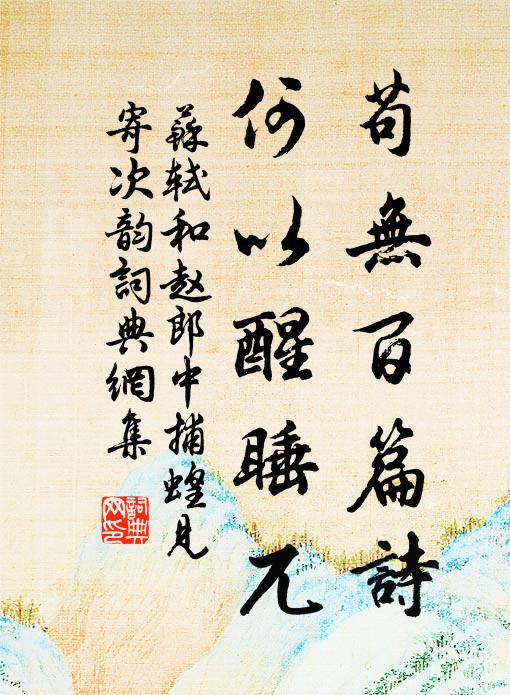 苟無百篇詩
何以醒睡兀
蘇轼和赵郎中捕蝗見
寄次韵詞典網集
詞典
网印